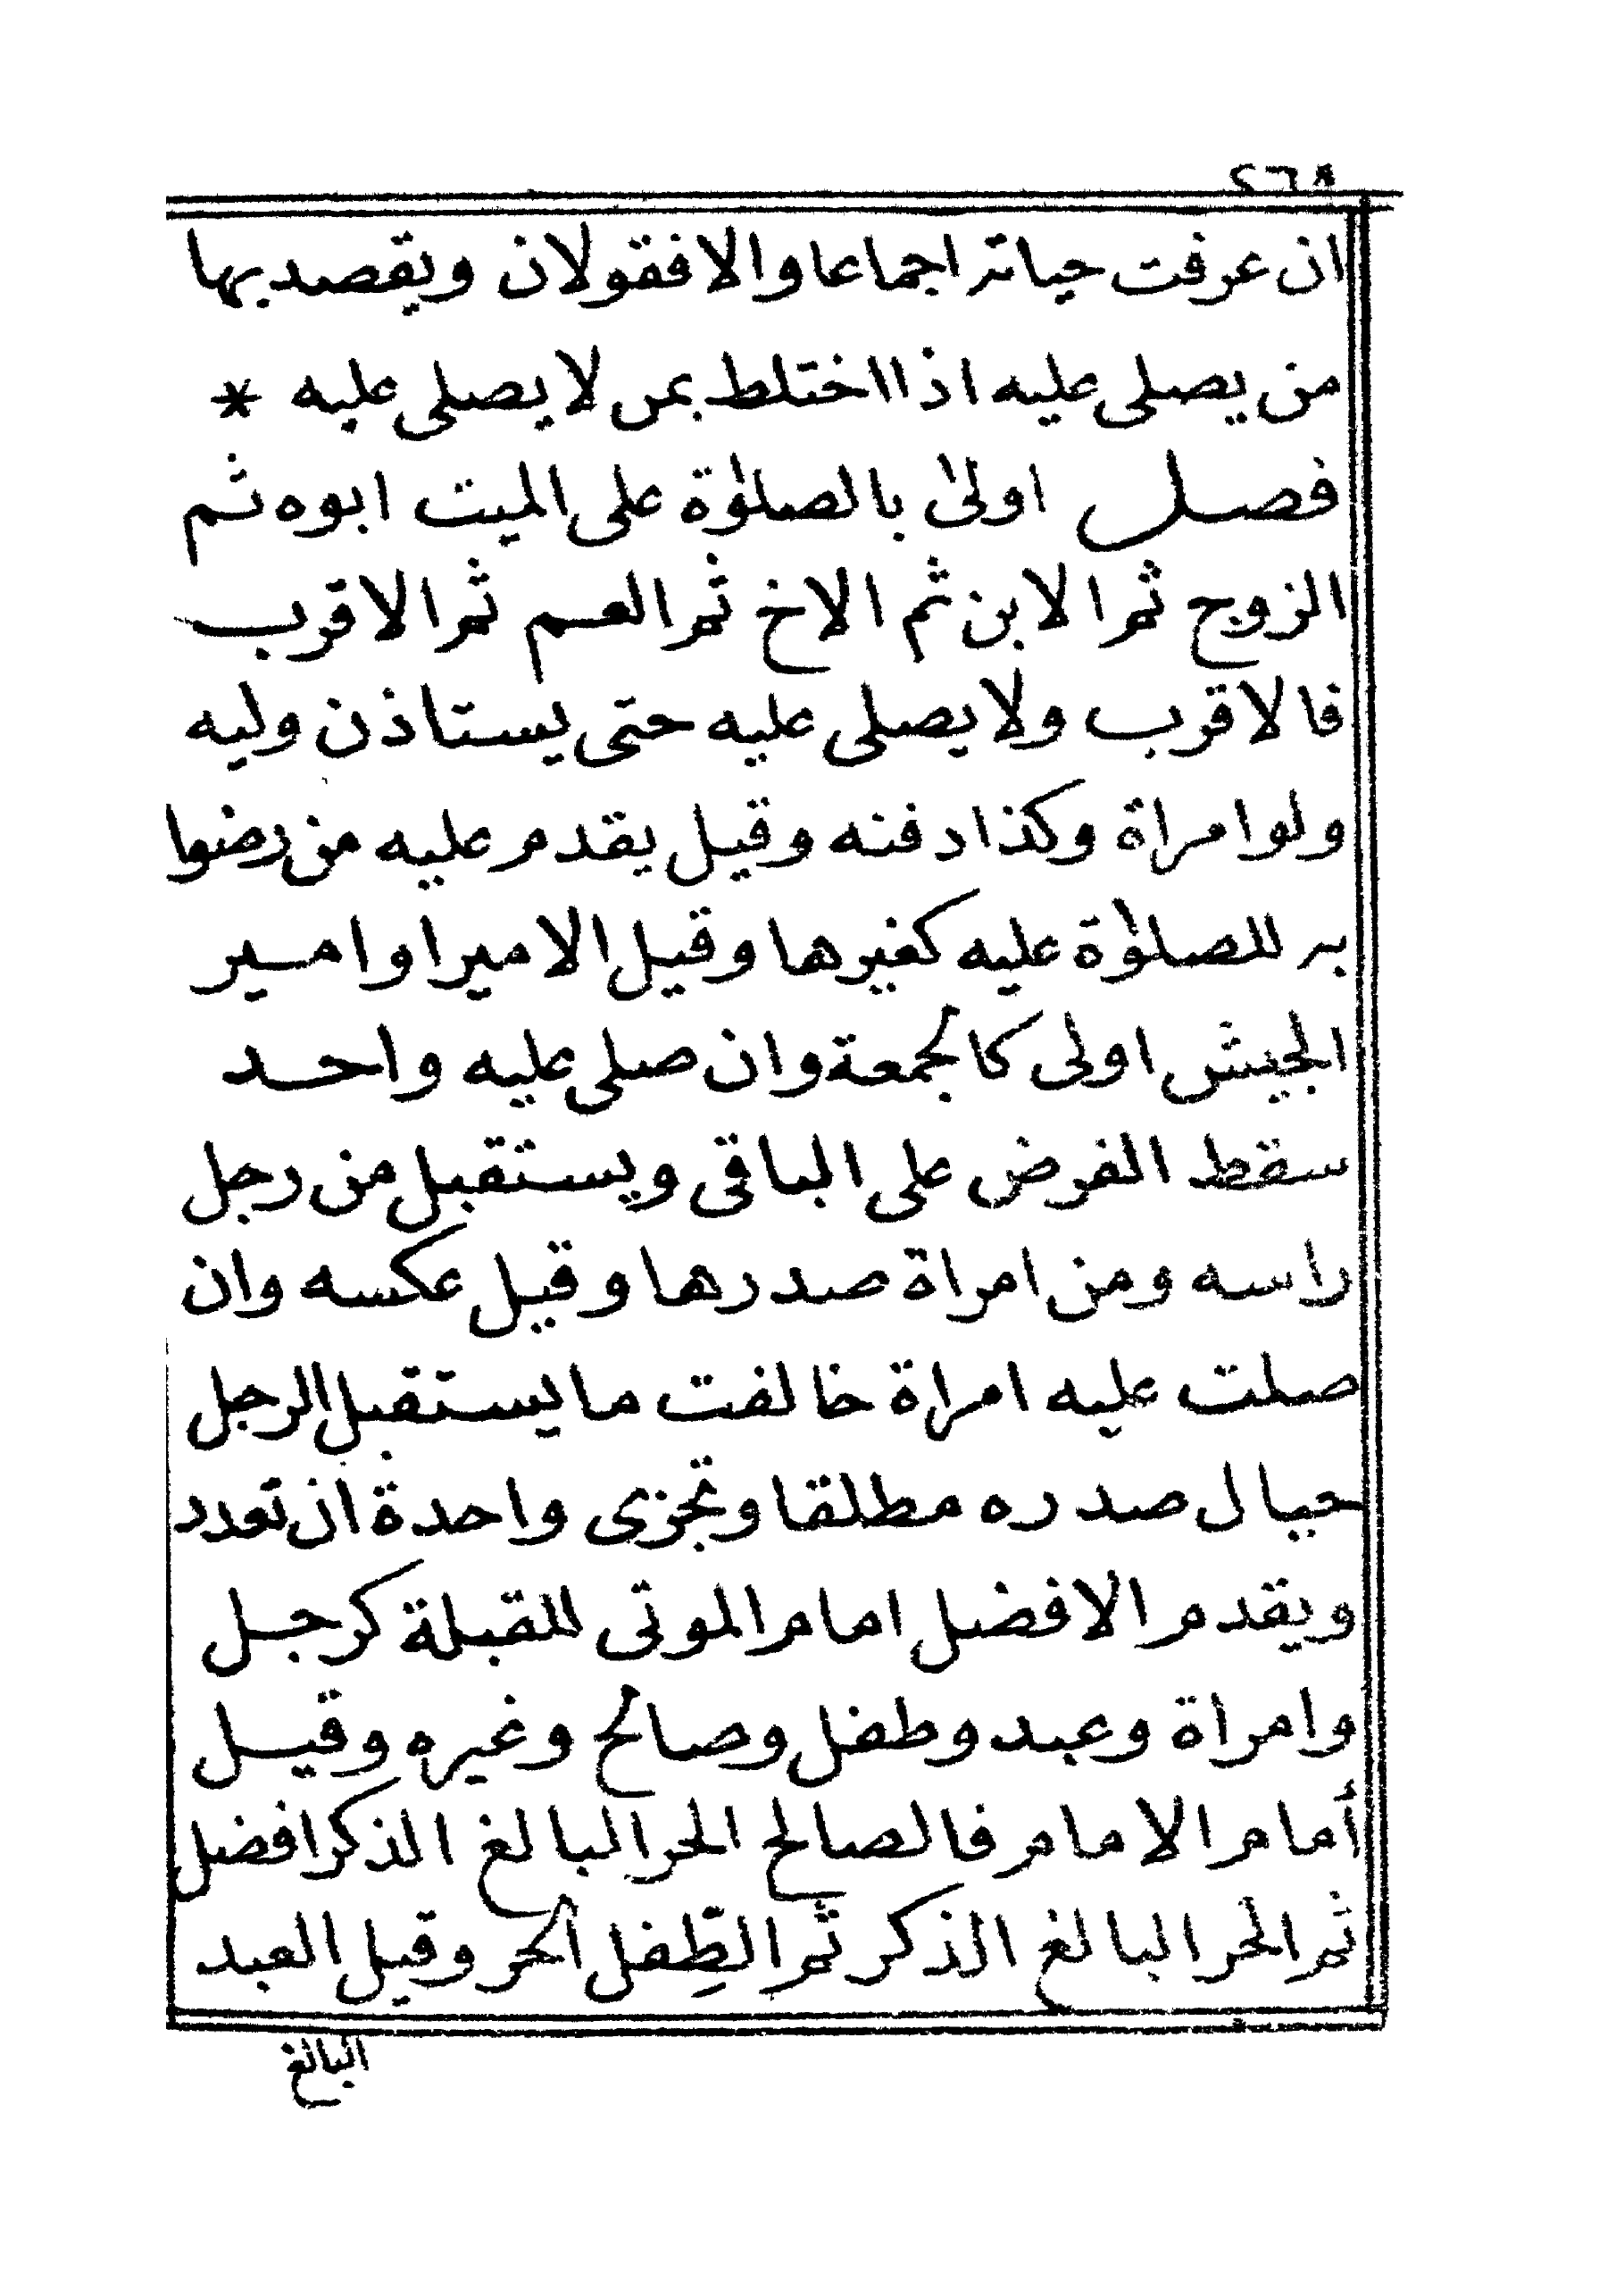 ٢٦٨
ان عرفت حياته اجماعا والا فقولان ويقصد بها
من يصلى عليه اذا اختلط بمن لا يصلى عليه *
فصل اولىٰ بالصلوٰة على الميت ابوه ثم
الزوج ثم الابن ثم الاخ ثم العم ثم الاقرب
فالاقرب ولا يصلى عليه حتى يستاذن وليه
ولو امراة وكذا دفنه وقيل يقدم عليه من رضوا
به للصلوٰة عليه كغيرها وقيل الامير او امير
الجيش اولى كالجمعة وان صلى عليه واحد
سقط الفرض على الباقى ويستقبل من رجل
راسه ومن امراة صدرها وقيل عكسه وان
صلت عليه امراة خالفت ما يستقبل الرجل
حيال صدره مطلقا وتجزى واحدة ان تعدد
ويقدم الافضل امام الموتى للقبلة كرجل
وامراة وعبد وطفل وصالح وغيره وقيل
أمام الامام فالصالح الحر البالغ الذكر افضل
ثم الحر البالغ الذكر ثم الطِّفل الحر وقيل العبد
البالغ